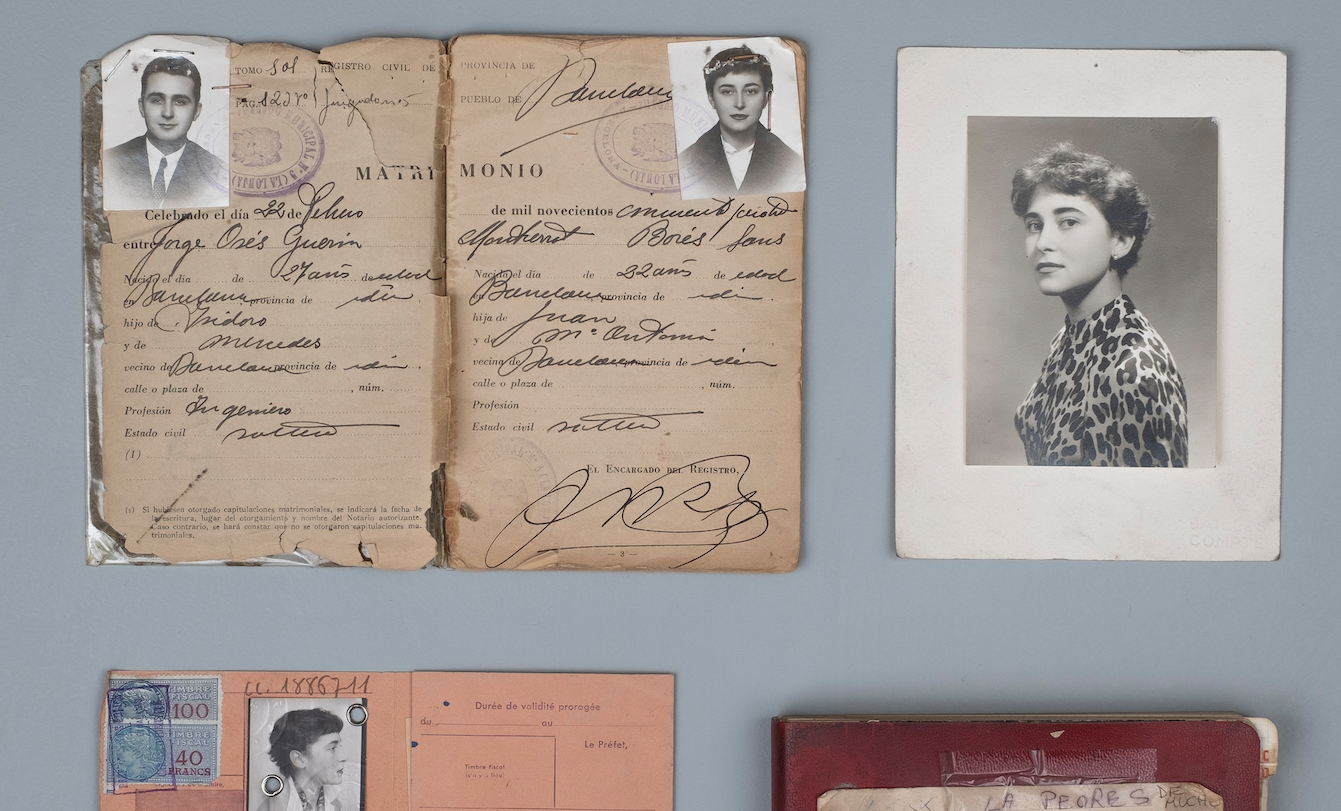 TOMO 801 REGISTRO CIVIL DE
PAG. 823 vº Juzgado nº 5
JUZGADO MUNICIPAL Nº 5 (LA LONJA)
MATRI
Celebrado el día 22 de Febrero
entre Jorge Osés Guerin
Nacido el día de 27 años de edad
en Barcelona provincia de idem.
hijo de Isidoro
y de Mercedes
vecino de Barcelona provincia de idem.
calle o plaza de , núm.
Profesión Ingeniero
Estado civil soltero
(1)
(1) Si hubiesen otorgado capitulaciones matrimoniales, se indicará la fecha de
la escritura, lugar del otorgamiento y nombre del Notario autorizante.
Caso contrario, se hará constar que no se otorgaron capitulaciones ma-
trimoniales.
PROVINCIA DE
PUEBLO DE Barcelona
MONIO
de mil novecientos cincuenta
Montserrat Borés Sans
Nacida el día de 22 años de edad
en Barcelona provincia de idem.
hija de Juan
y de Mª Antonia
vecina de Barcelona provincia de idem
calle o plaza de , núm.
Profesión
Estado civil soltera
EL ENCARGADO DEL REGISTRO,
— 3 —
COMPTE
TIMBRE
FISCAL
100
TIMBRE
FISCAL
40
FRANCS
cc. 1886711
Durée de validité prorogée
du au
Le Préfet,
Timbre fiscal
(s'il y a lieu)
LA PEORES DE
MUCH